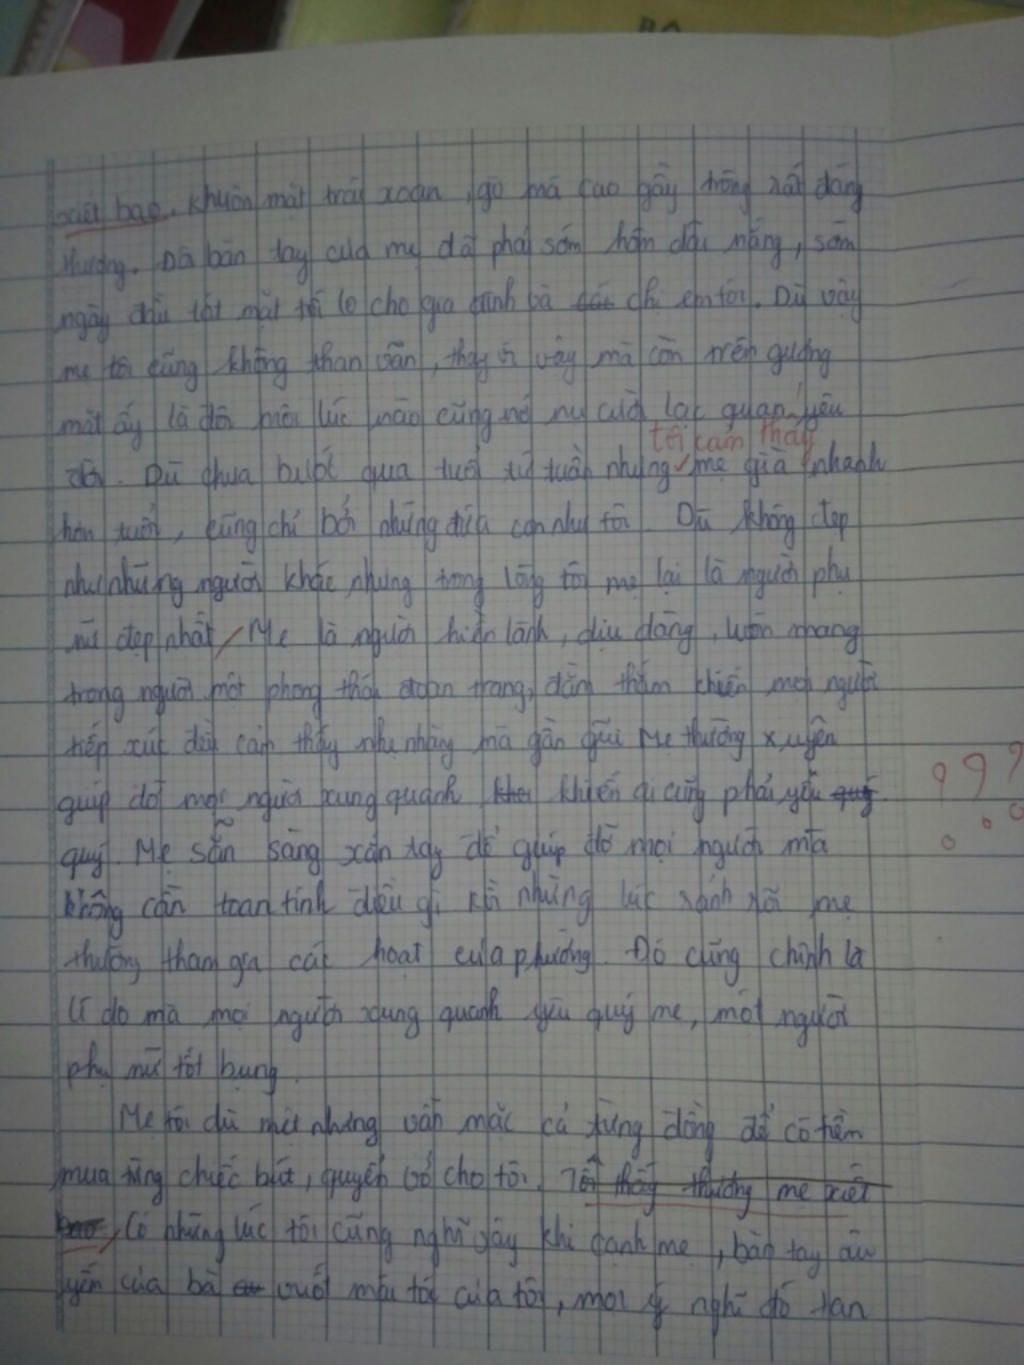 xiết bao. Khuôn mặt trái xoan, gò má cao gầy trông rất đáng
thương. Đôi bàn tay của mẹ đã phai sớm hôm dầu nắng, sớm
ngày đầu tắt mặt tối lo cho gia đình và chị em tôi. Dù vậy
mẹ tôi cũng không than vãn, thay vì vậy mà còn trên gương
mặt ấy là đôi môi lúc nào cũng nở nụ cười lạc quan, yêu
tôi cảm thấy
đời. Dù chưa bước qua tuổi tứ tuần nhưng mẹ già nhanh
hơn tuổi, cũng chỉ bởi những đứa con như tôi. Dù không đẹp
như những người khác nhưng trong lòng tôi mẹ lại là người phụ
nữ đẹp nhất / Mẹ là người hiền lành, dịu dàng, luôn mang
trong người một phong thái đoan trang, đằm thắm khiến mọi người
tiếp xúc đều cảm thấy nhẹ nhàng mà gần gũi Mẹ thường xuyên
giúp đỡ mọi người xung quanh khiến ai cũng phải yêu
quý. Mẹ sẵn sàng xắn tay để giúp đỡ mọi người mà
không cần toan tính điều gì những lúc rảnh rỗi mẹ
thường tham gia các hoạt của phường. Đó cũng chính là
lí do mà mọi người xung quanh yêu quý mẹ, một người
phụ nữ tốt bụng.
Mẹ tôi dù mệt nhưng vẫn mặc cả từng đồng để có tiền
mua từng chiếc bút, quyển vở cho tôi. Tôi thấy thương mẹ xiết
bao. Có những lúc tôi cũng nghĩ vậy khi cạnh mẹ, bàn tay âu
yếm của bà vuốt mái tóc của tôi, mọi ý nghĩ đó tan
? ? ?